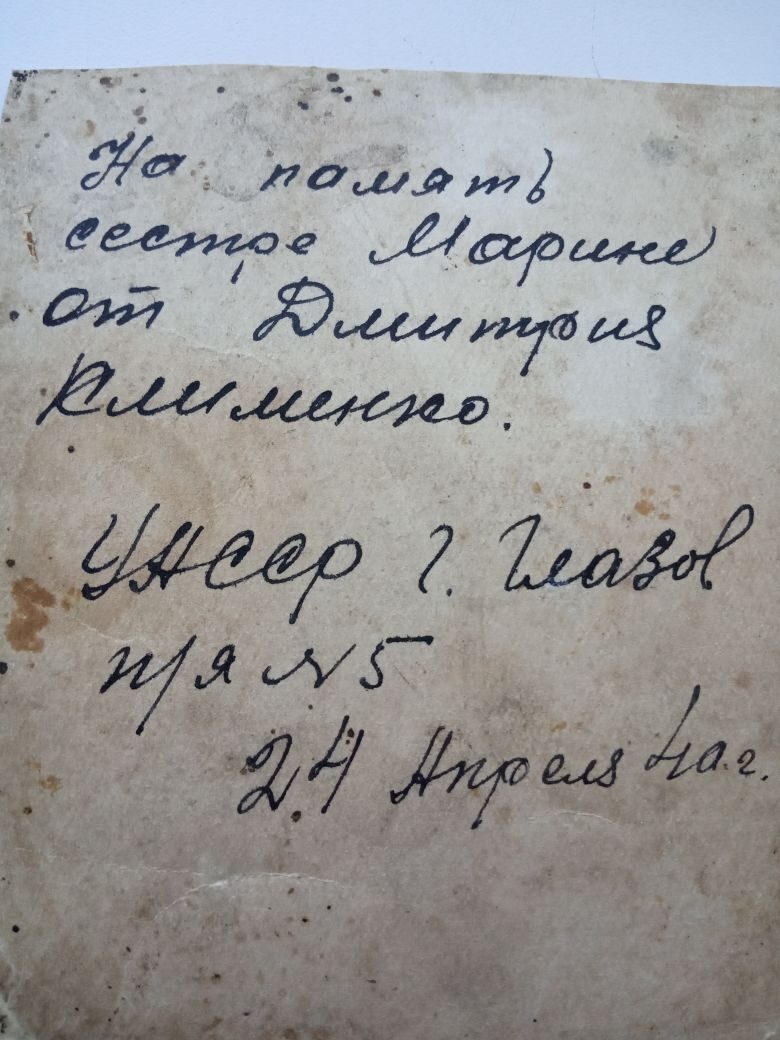 На память
сестре Марине
от Дмитрия
Клименко.
УАССР г. Глазов
п/я №5
24 Апреля